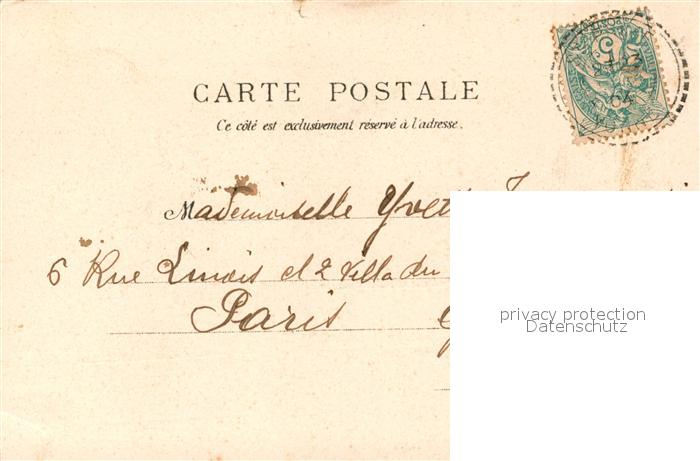 CARTE POSTALE
Ce côté est exclusivement réservé à l'adresse.
Mademoiselle
6 Rue et 2 Villa du
Paris
privacy protection
Datenschutz
5